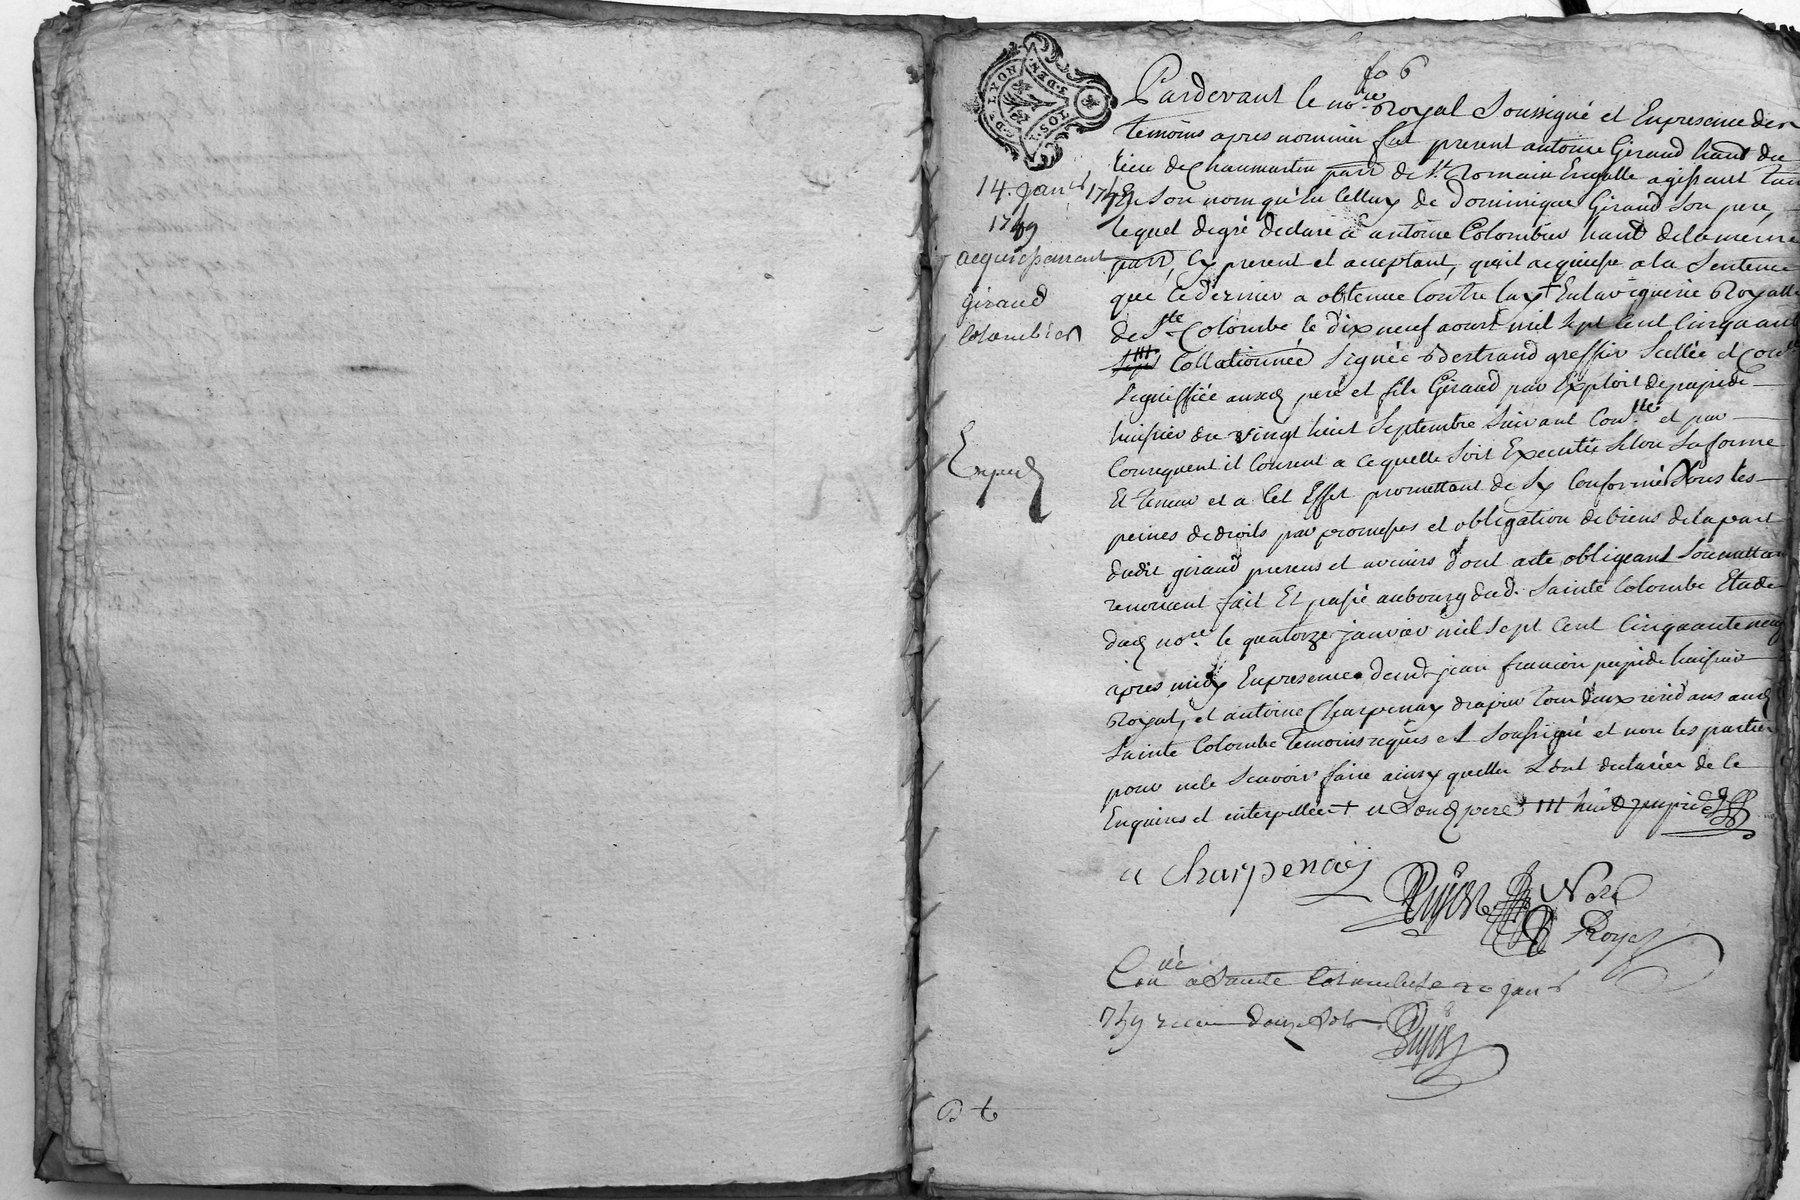 fo 6
G.DE LYON
2.S.DEN
TOS.
Pardevant le no.re Royal Soussigné et Enpresence des
temoins apres nommés fut present antoine Giraud habt du
lieu de Chaumartin parr de St Romain Engalle agissant tan
En son nom qu'en Celluy de Dominique Giraud Son pere,
lequel degré declare à antoine Colombier habt delamême
parr, Cy present et acceptant, qu'il acquiesse a la Sentence
que Ce dernier a obtenue Contre luy + Enlaviguerie Royalle
de Ste Colombe le dix neuf aoust mil sept Cent Cinquante
Collationnée Signée Bertrand greffier Scellée et
Signiffiée auxd pere et fils Giraud par Exploit de pupide
huissier du vingt huit Septembre Suivant Con.llé et par
Consequent il Consent a cequelle Soit Executée Selon Saforme
Et teneur et a Cet Effet promettant de Sy Conformer Sous les
peines dedroits par promesses et obligation debiens delapart
dudit giraud presens et avenirs dont acte obligeant Soumettan
renonceant fait Et passé aubourg dud. Sainte Colombe Etude
dud no.re le quatorze janvier mil sept Cent Cinquante neuf
apres midy Enpresence de jean francois pupide huissier
Royal, et antoine Charpenay drapier tous deux residans aud
Sainte Colombe temoins requis et Soussigné et non les parties
pour nele Scavoir faire ainsy quelles Sont declarées de ce
Enquises et interpellées + et Sond pere +++ huit pupide
a Charpenay
Pujos Nore
Royal
Con.llé a Sainte Colombe le 20 janr
759 recu douze Sols Pujos
14. Janr 1759
1759
acquiessement
giraud
Colombier
Exped